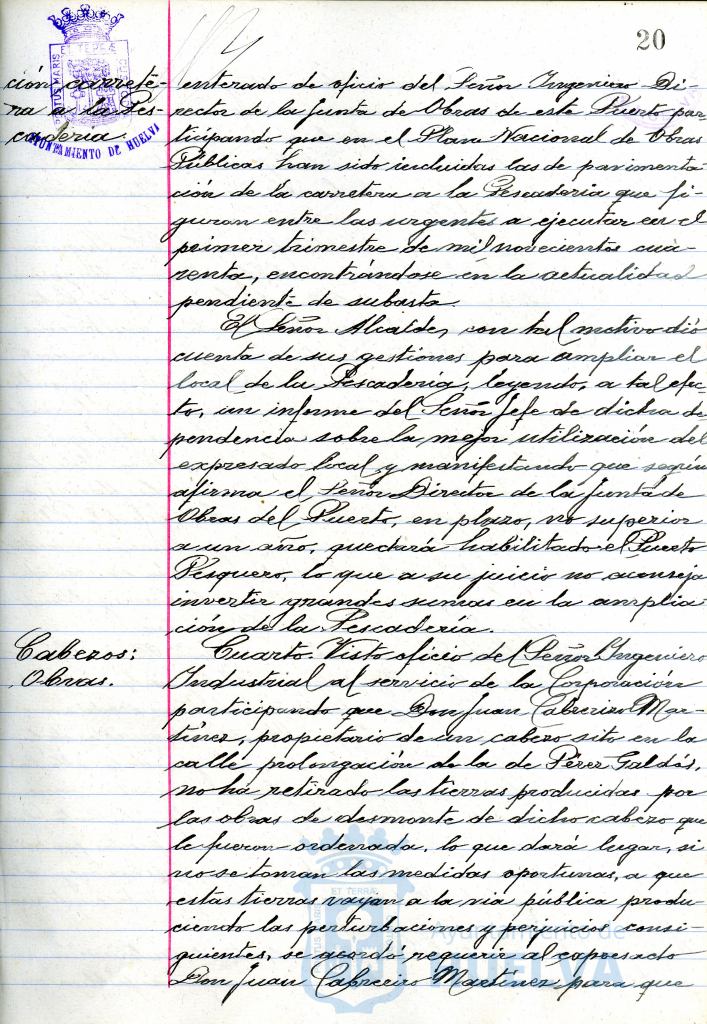 20
ción carrete-
ra a la Pes-
cadería.
AYUNTAMIENTO DE HUELVA
enterado de oficio del Señor Ingeniero Di-
rector de la Junta de Obras de este Puerto par-
ticipando que en el Plan Nacional de Obras
Públicas han sido incluidas las de pavimenta-
ción de la carretera a la Pescadería que fi-
guran entre las urgentes a ejecutar en el
primer trimestre de mil novecientos cua-
renta, encontrándose en la actualidad
pendiente de subasta.
El Señor Alcalde, con tal motivo dió
cuenta de sus gestiones para ampliar el
local de la Pescadería, leyendo, a tal efec-
to, un informe del Señor Jefe de dicha de-
pendencia sobre la mejor utilización del
expresado local y manifestando que según
afirma el Señor Director de la Junta de
Obras del Puerto, en plazo, no superior
a un año, quedará habilitado el Puerto
Pesquero, lo que a su juicio no aconseja
invertir grandes sumas en la amplia-
ción de la Pescadería.
Cabezos:
Obras.
Cuarto. Visto oficio del Señor Ingeniero
Industrial al servicio de la Corporación
participando que Don Juan Cabrerizo Mar-
tínez, propietario de un cabezo sito en la
calle prolongación de la de Pérez Galdós,
no há retirado las tierras producidas por
las obras de desmonte de dicho cabezo que
le fueron ordenada, lo que dará lugar, si
no se toman las medidas oportunas, a que
estas tierras vayan a la via pública produ-
ciendo las perturbaciones y perjuicios consi-
guientes, se acordó requerir al expresado
Don Juan Cabrerizo Martínez para que
Ayuntamiento de
HUELVA